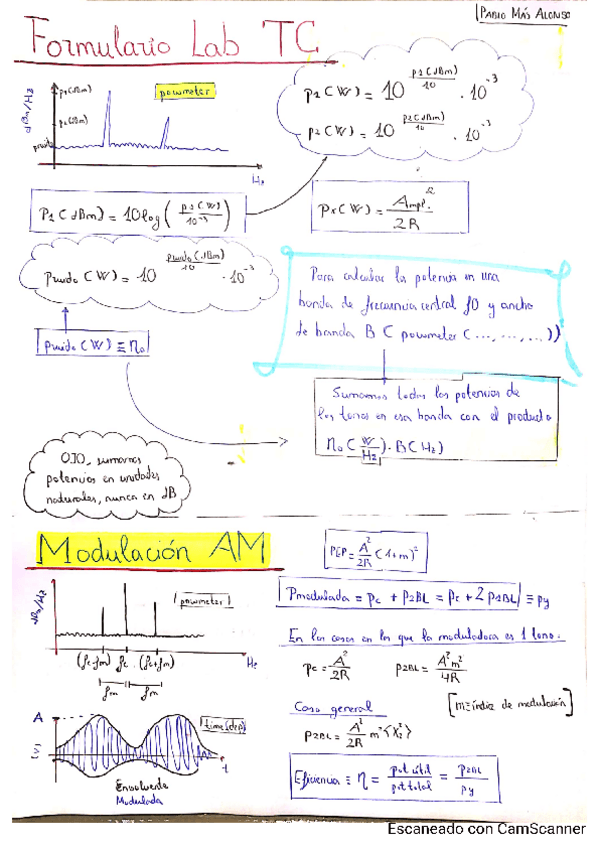 PABLO MÁS ALONSO
Formulario Lab TC
p1(dBm)
p2(dBm)
pruido
dBm/Hz
Hz
powmeter
p1(W) = 10^(p1(dBm)/10) · 10^-3
p2(W) = 10^(p2(dBm)/10) · 10^-3
P1(dBm) = 10log(p1(W)/10^-3)
Px(W) = Ampl.²/2R
Pruido(W) = 10^(pruido(dBm)/10) · 10^-3
pruido(W) ≡ n0
Para calcular la potencia en una
banda de frecuencia central f0 y ancho
de banda B ( powmeter (..., ..., ...))
Sumamos todas las potencias de
los tonos en esa banda con el producto
n0(W/Hz) · B(Hz)
OJO, sumamos
potencias en unidades
naturales, nunca en dB
Modulación AM
PEP = A²/2R (1+m)²
powmeter
Hz
(fc-fm) fc (fc+fm)
fm fm
Pmodulada = pc + p2BL = pc + 2 p1BL ≡ py
En los casos en los que la moduladora es 1 tono.
pc = A²/2R p2BL = A²m²/4R
[m≡índice de modulación]
Caso general
p2BL = A²/2R m²<x²>
A
(V)
time(dep)
t
Envolvente
Modulada
Eficiencia ≡ η = pot útil/pot total = p2BL/py
Escaneado con CamScanner